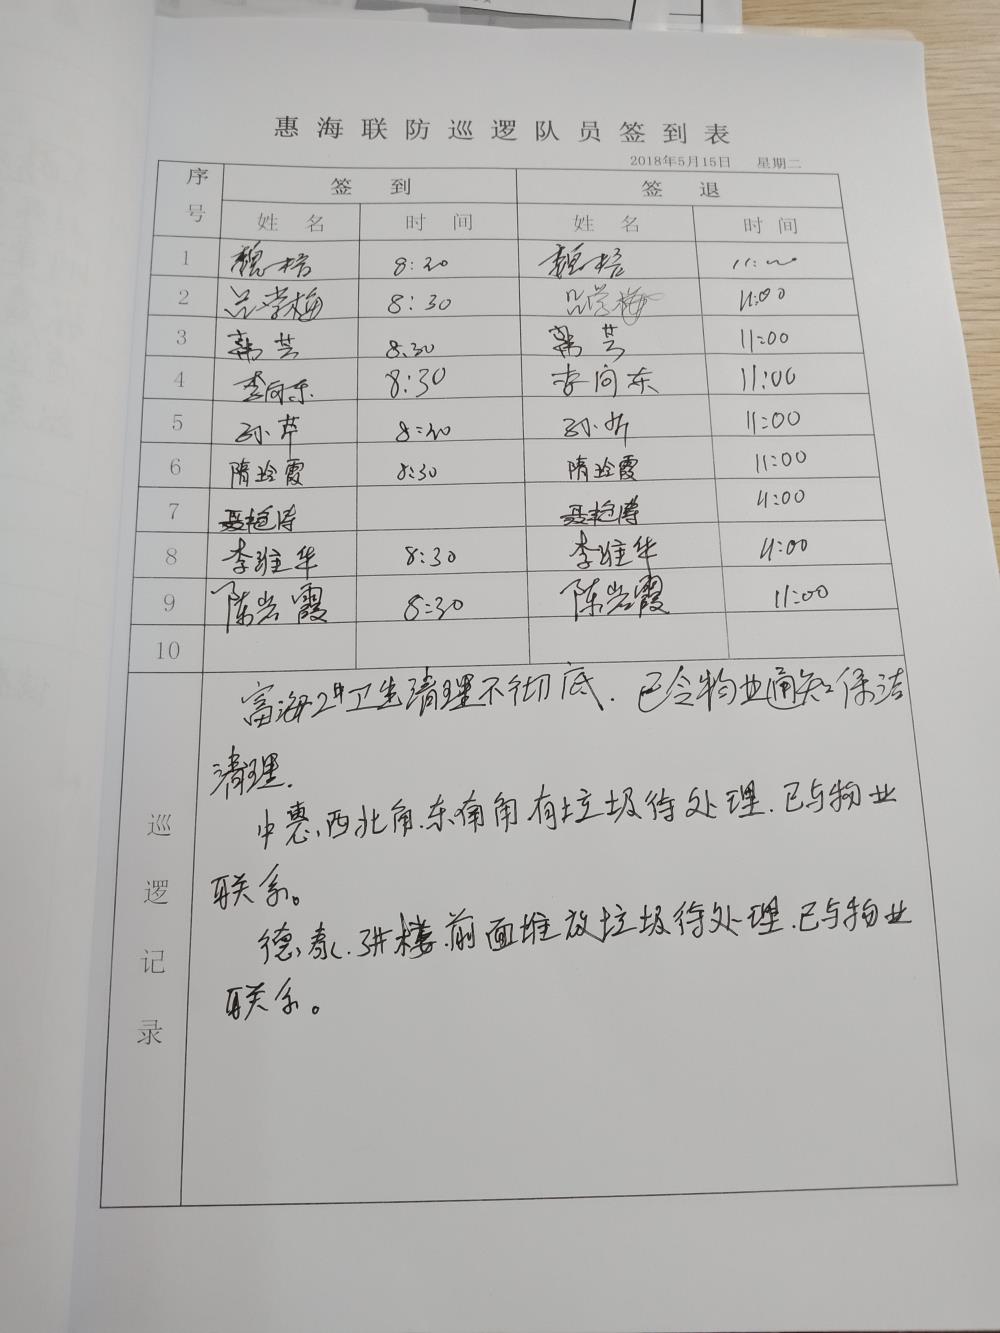 惠海联防巡逻队员签到表
2018年5月15日 星期二
序号 签到 签退
姓名 时间 姓名 时间
1 魏榕 8:30 魏榕 11:00
2 吕学梅 8:30 吕学梅 11:00
3 韩芸 8:30 韩芸 11:00
4 李向东 8:30 李向东 11:00
5 孙芹 8:30 孙芹 11:00
6 隋玲霞 8:30 隋玲霞 11:00
7 聂艳涛 聂艳涛 11:00
8 李维华 8:30 李维华 11:00
9 陈岩霞 8:30 陈岩霞 11:00
10
巡逻记录
富海2#卫生清理不彻底.已令物业通知保洁
清理.
中惠、西北角.东南角有垃圾待处理.已与物业
联系。
德泰.3#楼.前面堆放垃圾待处理.已与物业
联系。